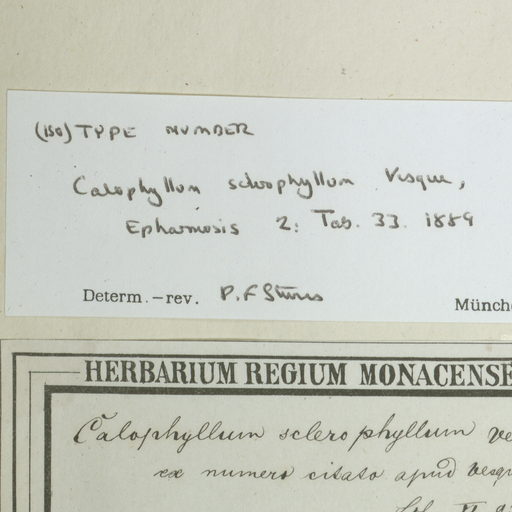 (iso) TYPE NUMBER
Calophyllum sclerophyllum Vesque,
Epharmosis 2: Tab. 33. 1889
Determ.-rev. P.F Stevens
Münche
HERBARIUM REGIUM MONACENSE
Calophyllum sclerophyllum Ve
ex numero citato apud Vesqu